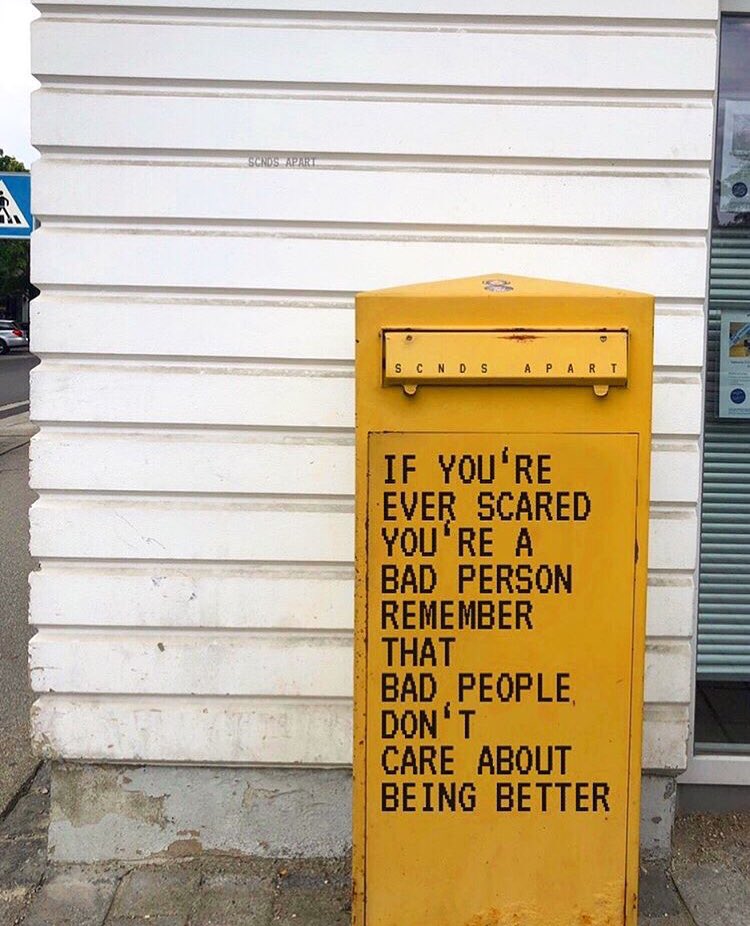 SCNDS APART
SCNDS APART
IF YOU'RE
EVER SCARED
YOU'RE A
BAD PERSON
REMEMBER
THAT
BAD PEOPLE
DON'T
CARE ABOUT
BEING BETTER